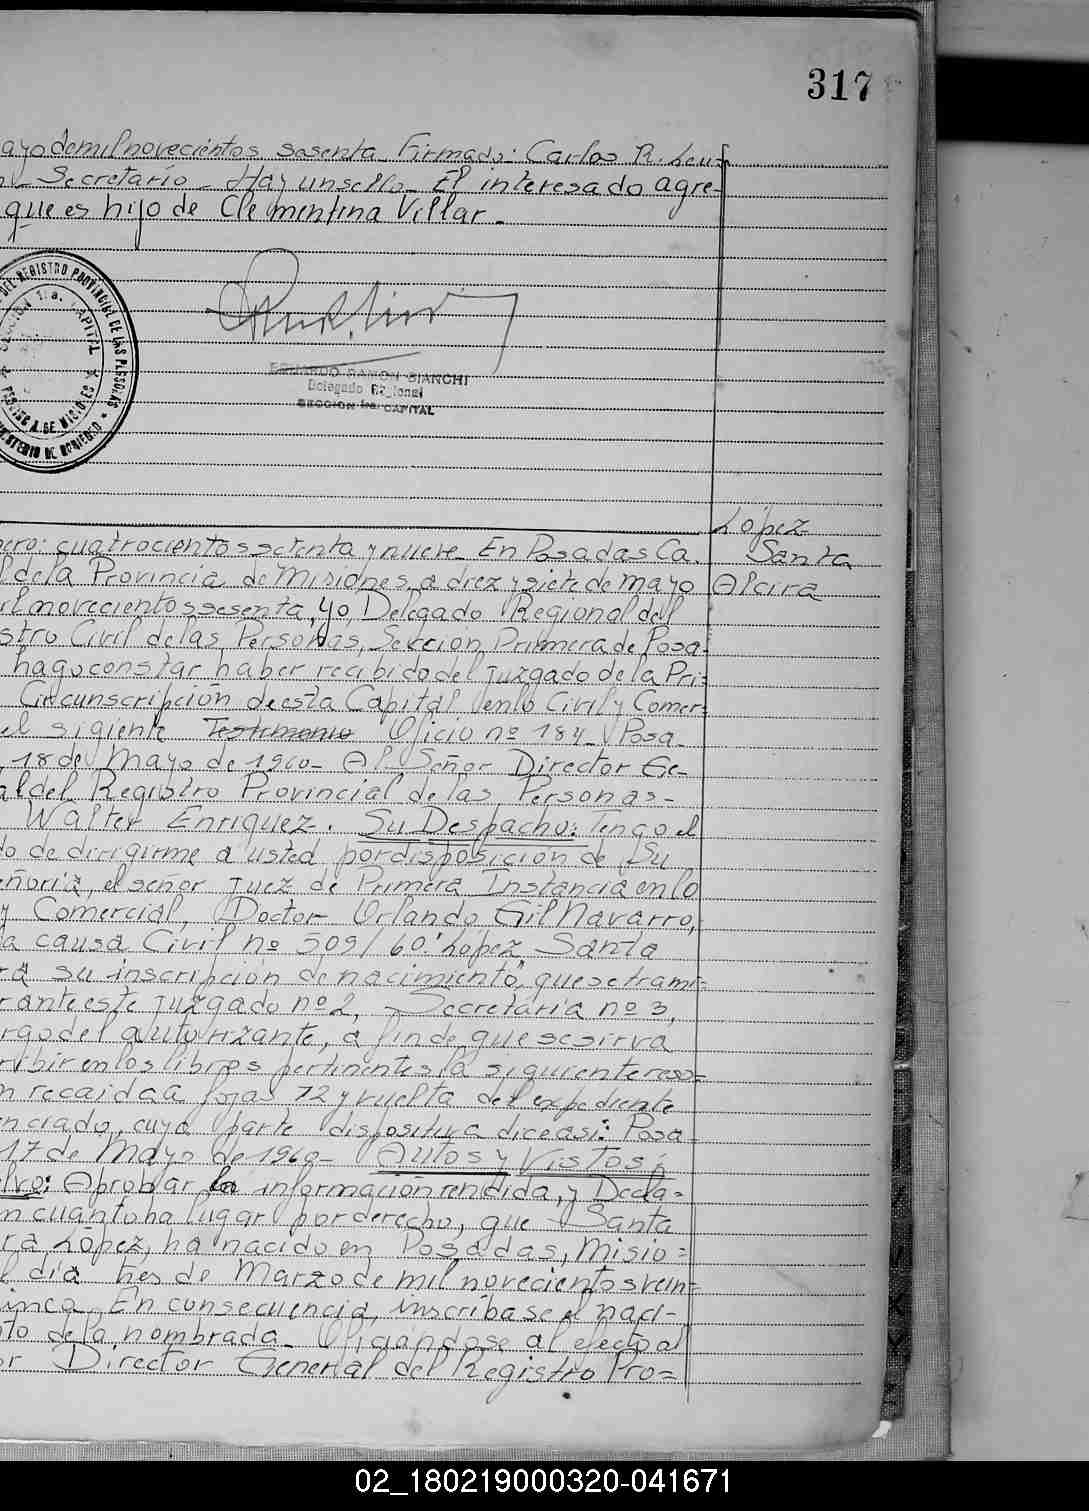 317
ayo de mil novecientos sesenta. Firmado: Carlos R. Leu=
Secretario - Hay un sello - El interesado agre-
que es hijo de Clementina Villar -
DEL REGISTRO PROVINCIAL DE LAS PERSONAS
SECCION 1ra. CAPITAL
EDUARDO RAMON BIANCHI
Delegado Regional
SECCION 1ra. CAPITAL
López
Santa
Alcira
mero: cuatrocientos setenta y nueve - En Posadas Ca.
l de la Provincia de Misiones, a diez y siete de mayo
il novecientos sesenta, Yo, Delegado Regional del
stro Civil de las Personas, Sección Primera de Posa-
hago constar haber recibido del juzgado de la Pri=
Circunscripción de esta Capital en lo Civil y Comer=
el sigiente Testimonio Oficio nº 184 - Posa-
, 18 de Mayo de 1960 - Al Señor Director Ge-
al del Registro Provincial de las Personas -
Walter Enriquez. Su Despacho: Tengo el
do de dirigirme a usted por disposición de Su
eñoría, el señor juez de Primera Instancia en lo
y Comercial, Doctor Orlando Gil Navarro,
a causa Civil nº 509/60: "López, Santa
ra su inscripción de nacimiento", que se trami=
r ante este juzgado nº 2, Secretaría nº 3,
rgo del autorizante, a fin de que se sirva
ribir en los libros pertinentes la siguiente reso=
n recaida a fojas 72 y vuelta del expediente
enciado, cuya parte dispositiva dice asi: Posa-
17 de Mayo de 1960 - Autos y Vistos;
lvo: Aprobar la información rendida, y Decla=
en cuanto ha lugar por derecho, que Santa
ra López, ha nacido en Posadas, Misio=
l día tres de Marzo de mil novecientos vein=
inco. En consecuencia, inscríbase el naci-
nto de la nombrada - Oficiándose al efecto al
or Director General del Registro Pro=
02_180219000320-041671